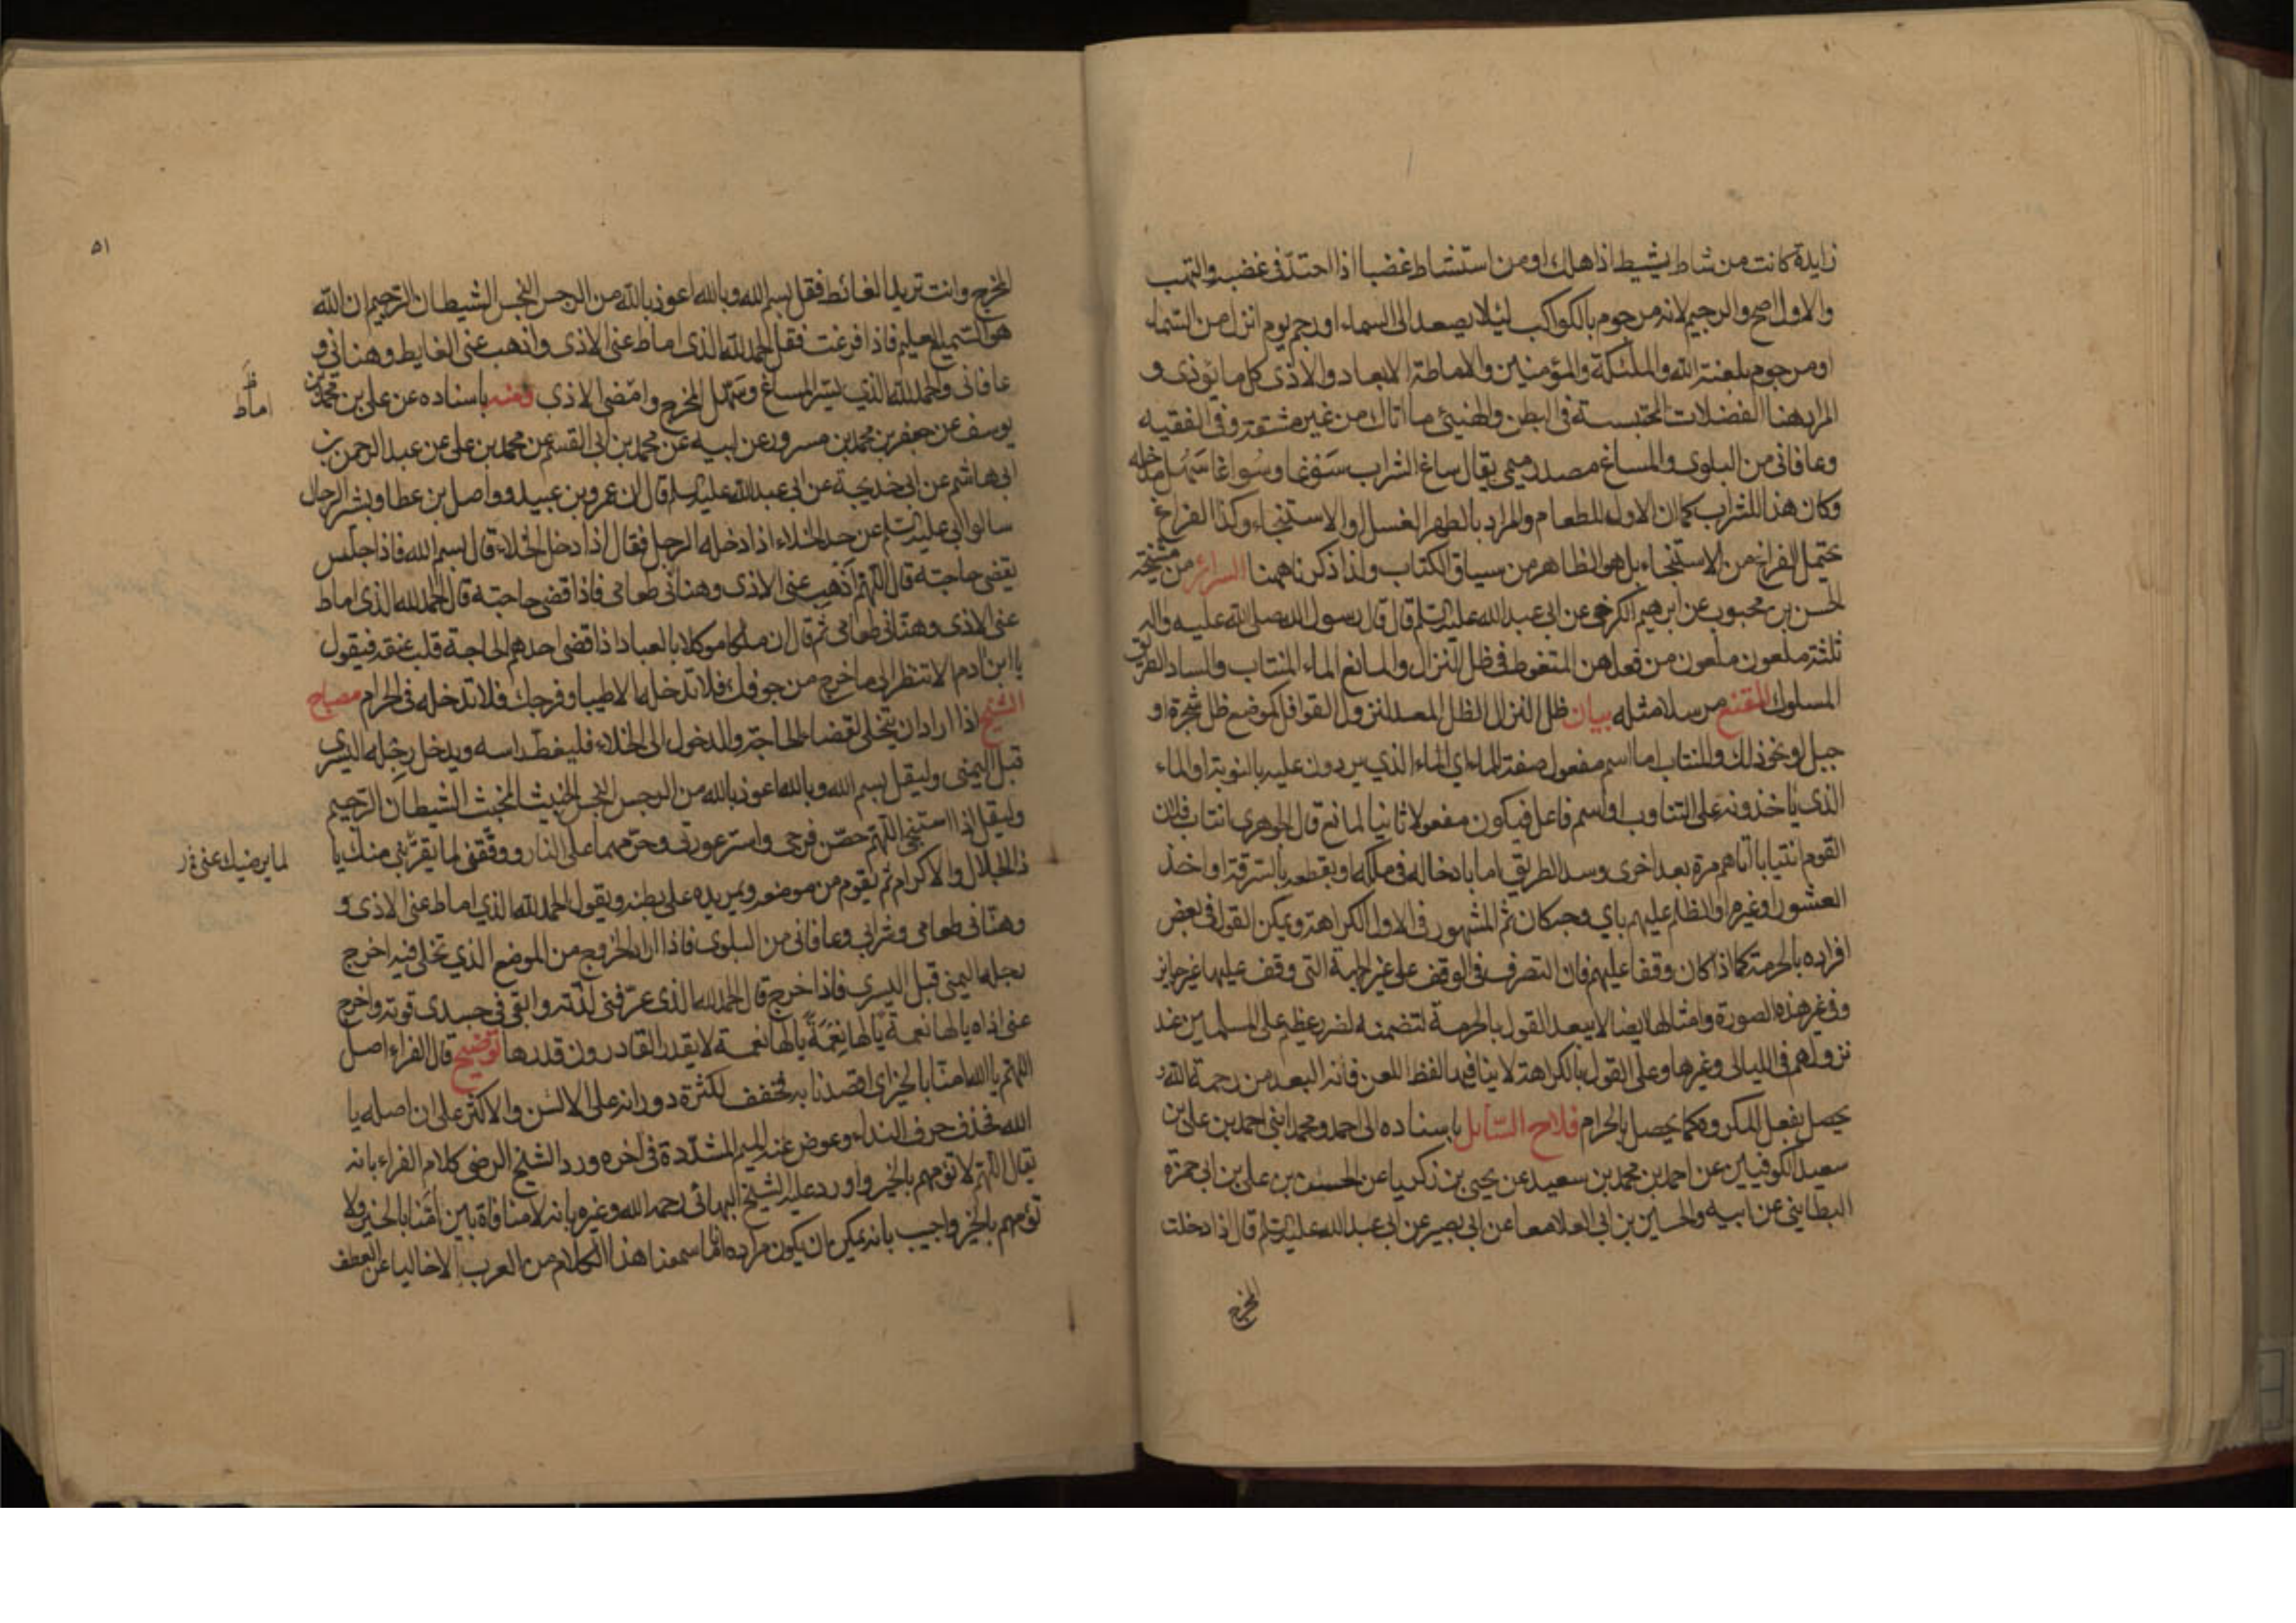 زايدة كانت من شاط يشيط اذا هلك او من استشاط غضبا اذا احتد فى غضبه والتهب
والاول اصح والرجيم لانه مرجوم بالكواكب لئلا يصعد الى السماء او رجم يوم انزل من السماء
او مرجوم بلعنة الله والملئكة والمؤمنين والاماطة الابعاد والاذى كل ما يؤذى و
المراد هنا الفضلات المحتبسة فى البطن والهنيئ ما اتاك من غير مشقة وفى الفقيه
وعافانى من البلوى والمساغ مصدر ميمى يقال ساغ الشراب سَوْغا وسُواغا سَهُل مدخله
وكان هذا للشراب كما ان الاول للطعام والمراد بالطهر الغسل او الاستنجاء وكذا الفراغ
يحتمل الفراغ من الاستنجاء بل هو الظاهر من سياق الكتاب ولذا ذكرناه هنا السرائر من مشيخة
الحسن بن محبوب عن ابرهيم الكرخى عن ابى عبد الله عليه السلم قال قال رسول الله صلى الله عليه واله
ثلثة ملعون ملعون من فعلهن المتغوط فى ظل النزال والمانع الماء المنتاب والساد الطريق
المسلوك المقنع مرسلا مثله بيان ظل النزال الظل المعد لنزول القوافل كموضع ظل شجرة او
جبل او نحو ذلك والمنتاب اما اسم مفعول صفة الماء اي الماء الذي يردون عليه بالنوبة او الماء
الذى ياخذونه على التناوب او اسم فاعل فيكون مفعولا ثانيا لمانع قال الجوهرى انتاب فلان
القوم انتيابا اتاهم مرة بعد اخرى وسد الطريق اما بادخاله فى ملكه او بقطعه بالسرقة او اخذ
العشور او غيره او الظلم عليهم باي وجه كان ثم المشهور فى الاول الكراهة ويمكن القول فى بعض
افراده بالحرمة كما اذا كان وقفا عليهم فان التصرف فى الوقف على غير الجهة التى وقف عليها غير جايز
وفى غير هذه الصورة وامثالها ايضا لا يبعد القول بالحرمة لتضمنه لضرر عظيم على المسلمين عند
نزولهم فى الليالى وغيرها وعلى القول بالكراهة لا ينافيه الفظ اللعن فانه البعد من رحمة الله و
يحصل بفعل المكروه كما يحصل بالحرام فلاح السائل باسناده الى احمد ومحمد ابنى احمد بن على بن
سعيد الكوفيين عن احمد بن محمد بن سعيد عن يحيى بن زكريا عن الحسن بن على بن ابى حمزة
البطاينى عن ابيه والحسين بن ابى العلا معا عن ابى بصير عن ابى عبد الله عليه السلم قال اذا دخلت
المخرج
٥١
المخرج وانت تريد الغائط فقل بسم الله وبالله اعوذ بالله من الرجس النجس الشيطان الرجيم ان الله
هو السميع العليم فاذا فرغت فقل الحمد لله الذى اماط عنى الاذى واذهب عنى الغايط وهنانى و
عافانى والحمد لله الذي يسر المساغ وسهل المخرج وامضى الاذى ومنه باسناده عن على بن محمد بن
اماط
يوسف عن جعفر بن محمد بن مسرور عن ابيه عن محمد بن ابى القسم عن محمد بن على عن عبد الرحمن بن
ابى هاشم عن ابى خديجة عن ابى عبد الله عليه السلم قال ان عمرو بن عبيد وواصل بن عطا وبشر الرحال
سالوا ابى عليه السلم عن حد الخلاء اذا دخله الرجل فقال اذا دخل الخلاء قال بسم الله فاذا جلس
يقضى حاجته قال اللهم اذهب عنى الاذى وهنانى طعامى فاذا قضى حاجته قال الحمد لله الذى اماط
عنى الاذى وهنانى طعامى ثم قال ان ملكا موكلا بالعباد اذا قضى احدهم الحاجة قلب عنقه فيقول
يا ابن ادم الا تنظر الى ما خرج من جوفك فلا تدخله الا طيبا وفرجك فلا تدخله فى الحرام مصباح
الشيخ اذا اراد ان يتخلى لقضاء الحاجة والدخول الى الخلاء فليغط راسه ويدخل رجله اليسرى
قبل اليمنى وليقل بسم الله وبالله اعوذ بالله من الرجس النجس الخبيث المخبث الشيطان الرجيم
وليقل اذا استنجى اللهم حصن فرجى واستر عورتى وحرمهما على النار ووفقنى لما يقربنى منك يا
لما يرضيك عنى
ذا الجلال والاكرام ثم يقوم من موضعه ويمر يده على بطنه ويقول الحمد لله الذي اماط عنى الاذى و
وهنانى طعامى وشرابى وعافانى من البلوى فاذا اراد الخروج من الموضع الذي تخلى فيه اخرج
رجله اليمنى قبل اليسرى فاذا خرج قال الحمد لله الذى عرفنى لذته وابقى فى جسدى قوته واخرج
عنى اذاه يالها نعمة يالها نِعْمَةً يالها نعمة لا يقدر القادرون قدرها توضيح قال الفراء اصل
اللهم يا الله امنا بالخير اى اقصدنا به فخفف لكثرة دورانه على الالسن والاكثر على ان اصله يا
الله فحذف حرف النداء وعوض عنه الميم المشددة فى اخره ورد الشيخ الرضى كلام الفراء بانه
يقال اللهم لا تؤمهم بالخير واورد عليه الشيخ البهائى رحمه الله وغيره بانه لا منافاة بين امّنا بالخير ولا
تؤمهم بالخير واجيب بانه يمكن ان يكون مراده انا ما سمعنا هذا الكلام من العرب الا خاليا عن العطف